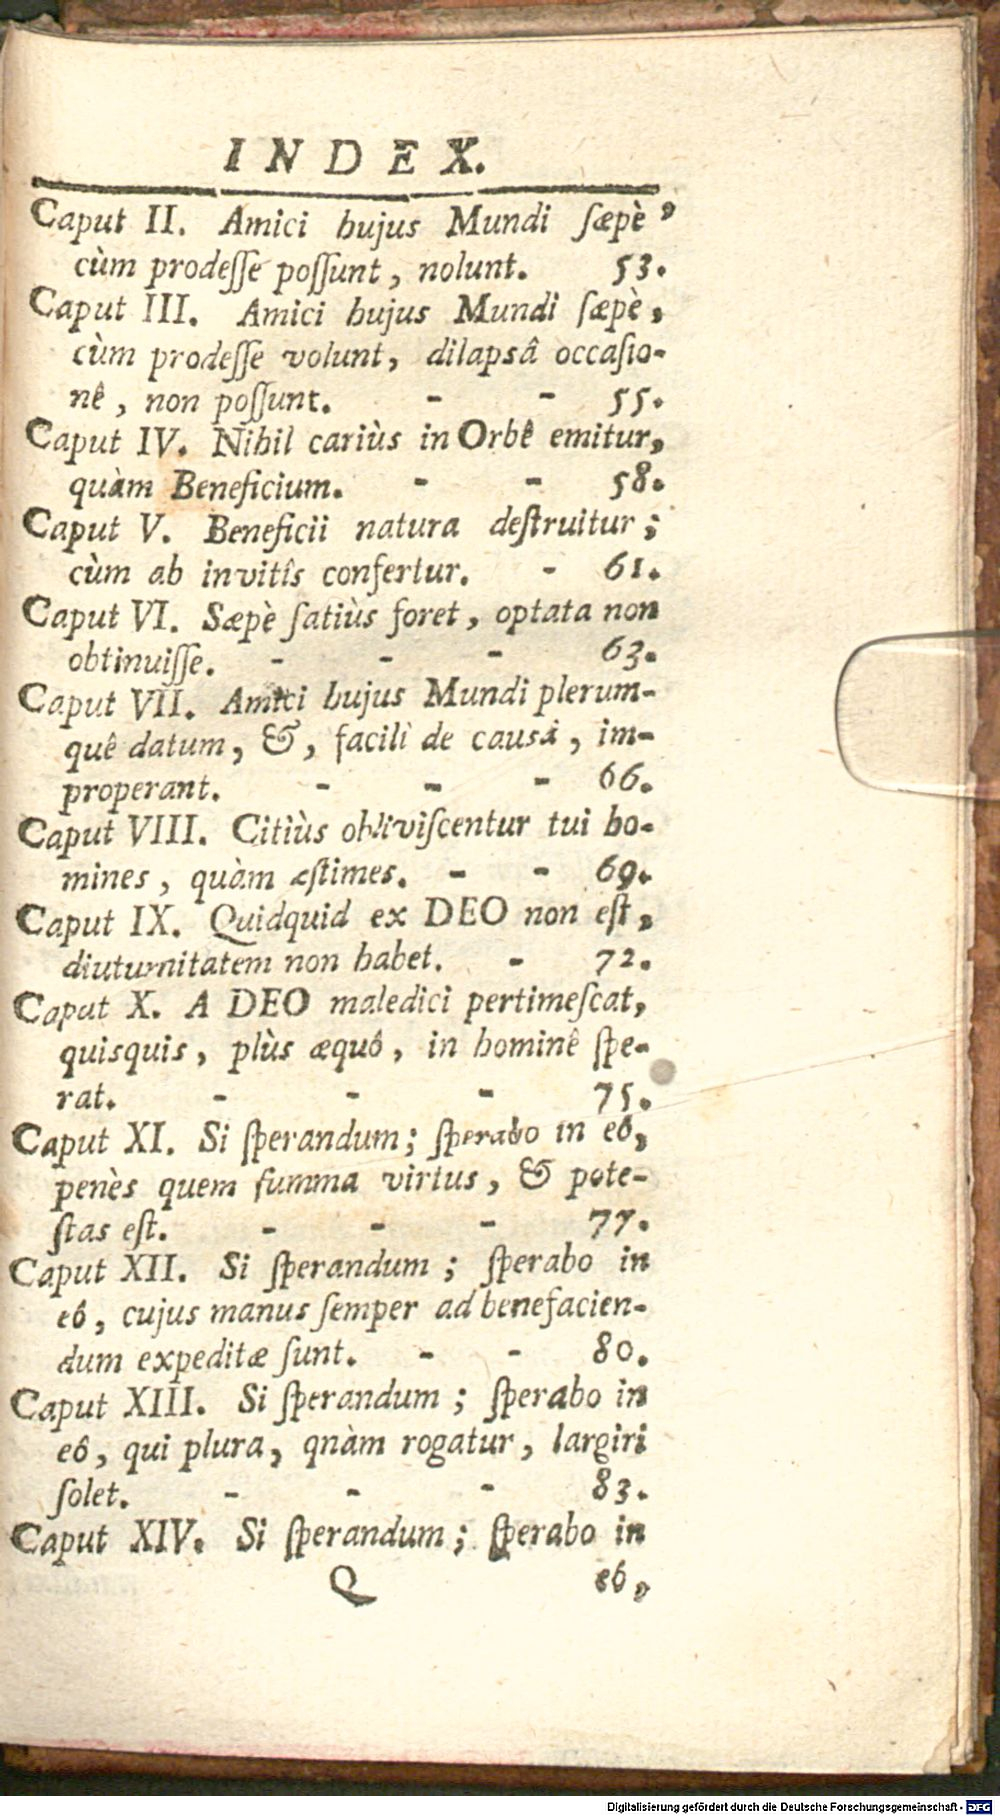 INDEX.
Caput II. Amici hujus Mundi ſæpè,
cùm prodeſſe poſſunt, nolunt. 53.
Caput III. Amici hujus Mundi ſæpè,
cùm prodeſſe volunt, dilapsâ occaſio-
nê, non poſſunt. - - 55.
Caput IV. Nihil cariùs in Orbê emitur,
quàm Beneficium. - - 58.
Caput V. Beneficii natura deſtruitur;
cùm ab invitîs confertur. - 61.
Caput VI. Sæpè ſatiùs foret, optata non
obtinuiſſe. - - - 63.
Caput VII. Amici hujus Mundi plerum-
quê datum, &, facilì de causâ, im-
properant. - - - 66.
Caput VIII. Citiùs obliviſcentur tui ho-
mines, quàm æſtimes. - - 69.
Caput IX. Quidquid ex DEO non eſt,
diuturnitatem non habet. - 72.
Caput X. A DEO maledici pertimeſcat,
quisquis, plùs æquô, in hominê ſpe-
rat. - - - 75.
Caput XI. Si ſperandum; ſperabo in eô,
penès quem ſumma virtus, & pote-
ſtas eſt. - - - 77.
Caput XII. Si ſperandum; ſperabo in
eô, cujus manus ſemper ad benefacien-
dum expeditæ ſunt. - - 80.
Caput XIII. Si ſperandum; ſperabo in
eô, qui plura, qnàm rogatur, largiri
ſolet. - - - 83.
Caput XIV. Si ſperandum; ſperabo in
Q eô,
Digitalisierung gefördert durch die Deutsche Forschungsgemeinschaft - DFG